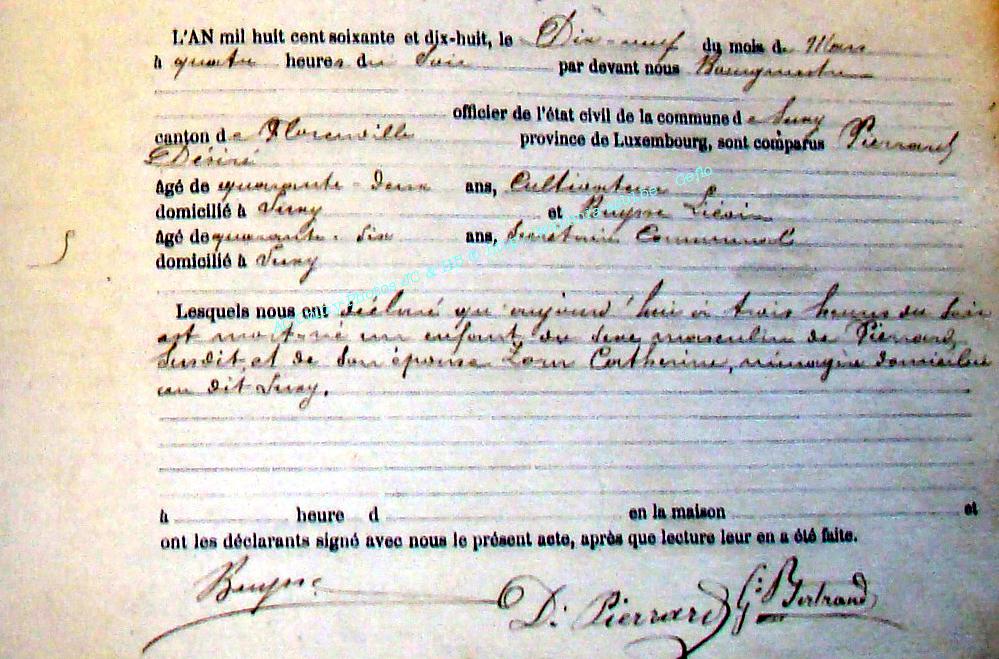 L'AN mil huit cent soixante et dix-huit, le Dix-neuf du mois de Mars
à quatre heures du Soir par devant nous Bourgmestre
officier de l'état civil de la commune de Suxy
canton de Florenville province de Luxembourg, sont comparus Pierrard
Désiré
âgé de quarante-deux ans, Cultivateur
domicilié à Suxy et Buysse Liévin
âgé de quarante-six ans, Secrétaire Communal
domicilié à Suxy
5
Lesquels nous ont déclaré qu'aujourd'hui à trois heures du Soir
est mort-né un enfant du sexe masculin de Pierrard
susdit, et de son épouse Catherine, ménagère domiciliée
au dit Suxy.
à heure d en la maison et
ont les déclarants signé avec nous le présent acte, après que lecture leur en a été faite.
Buysse D. Pierrard Bertrand